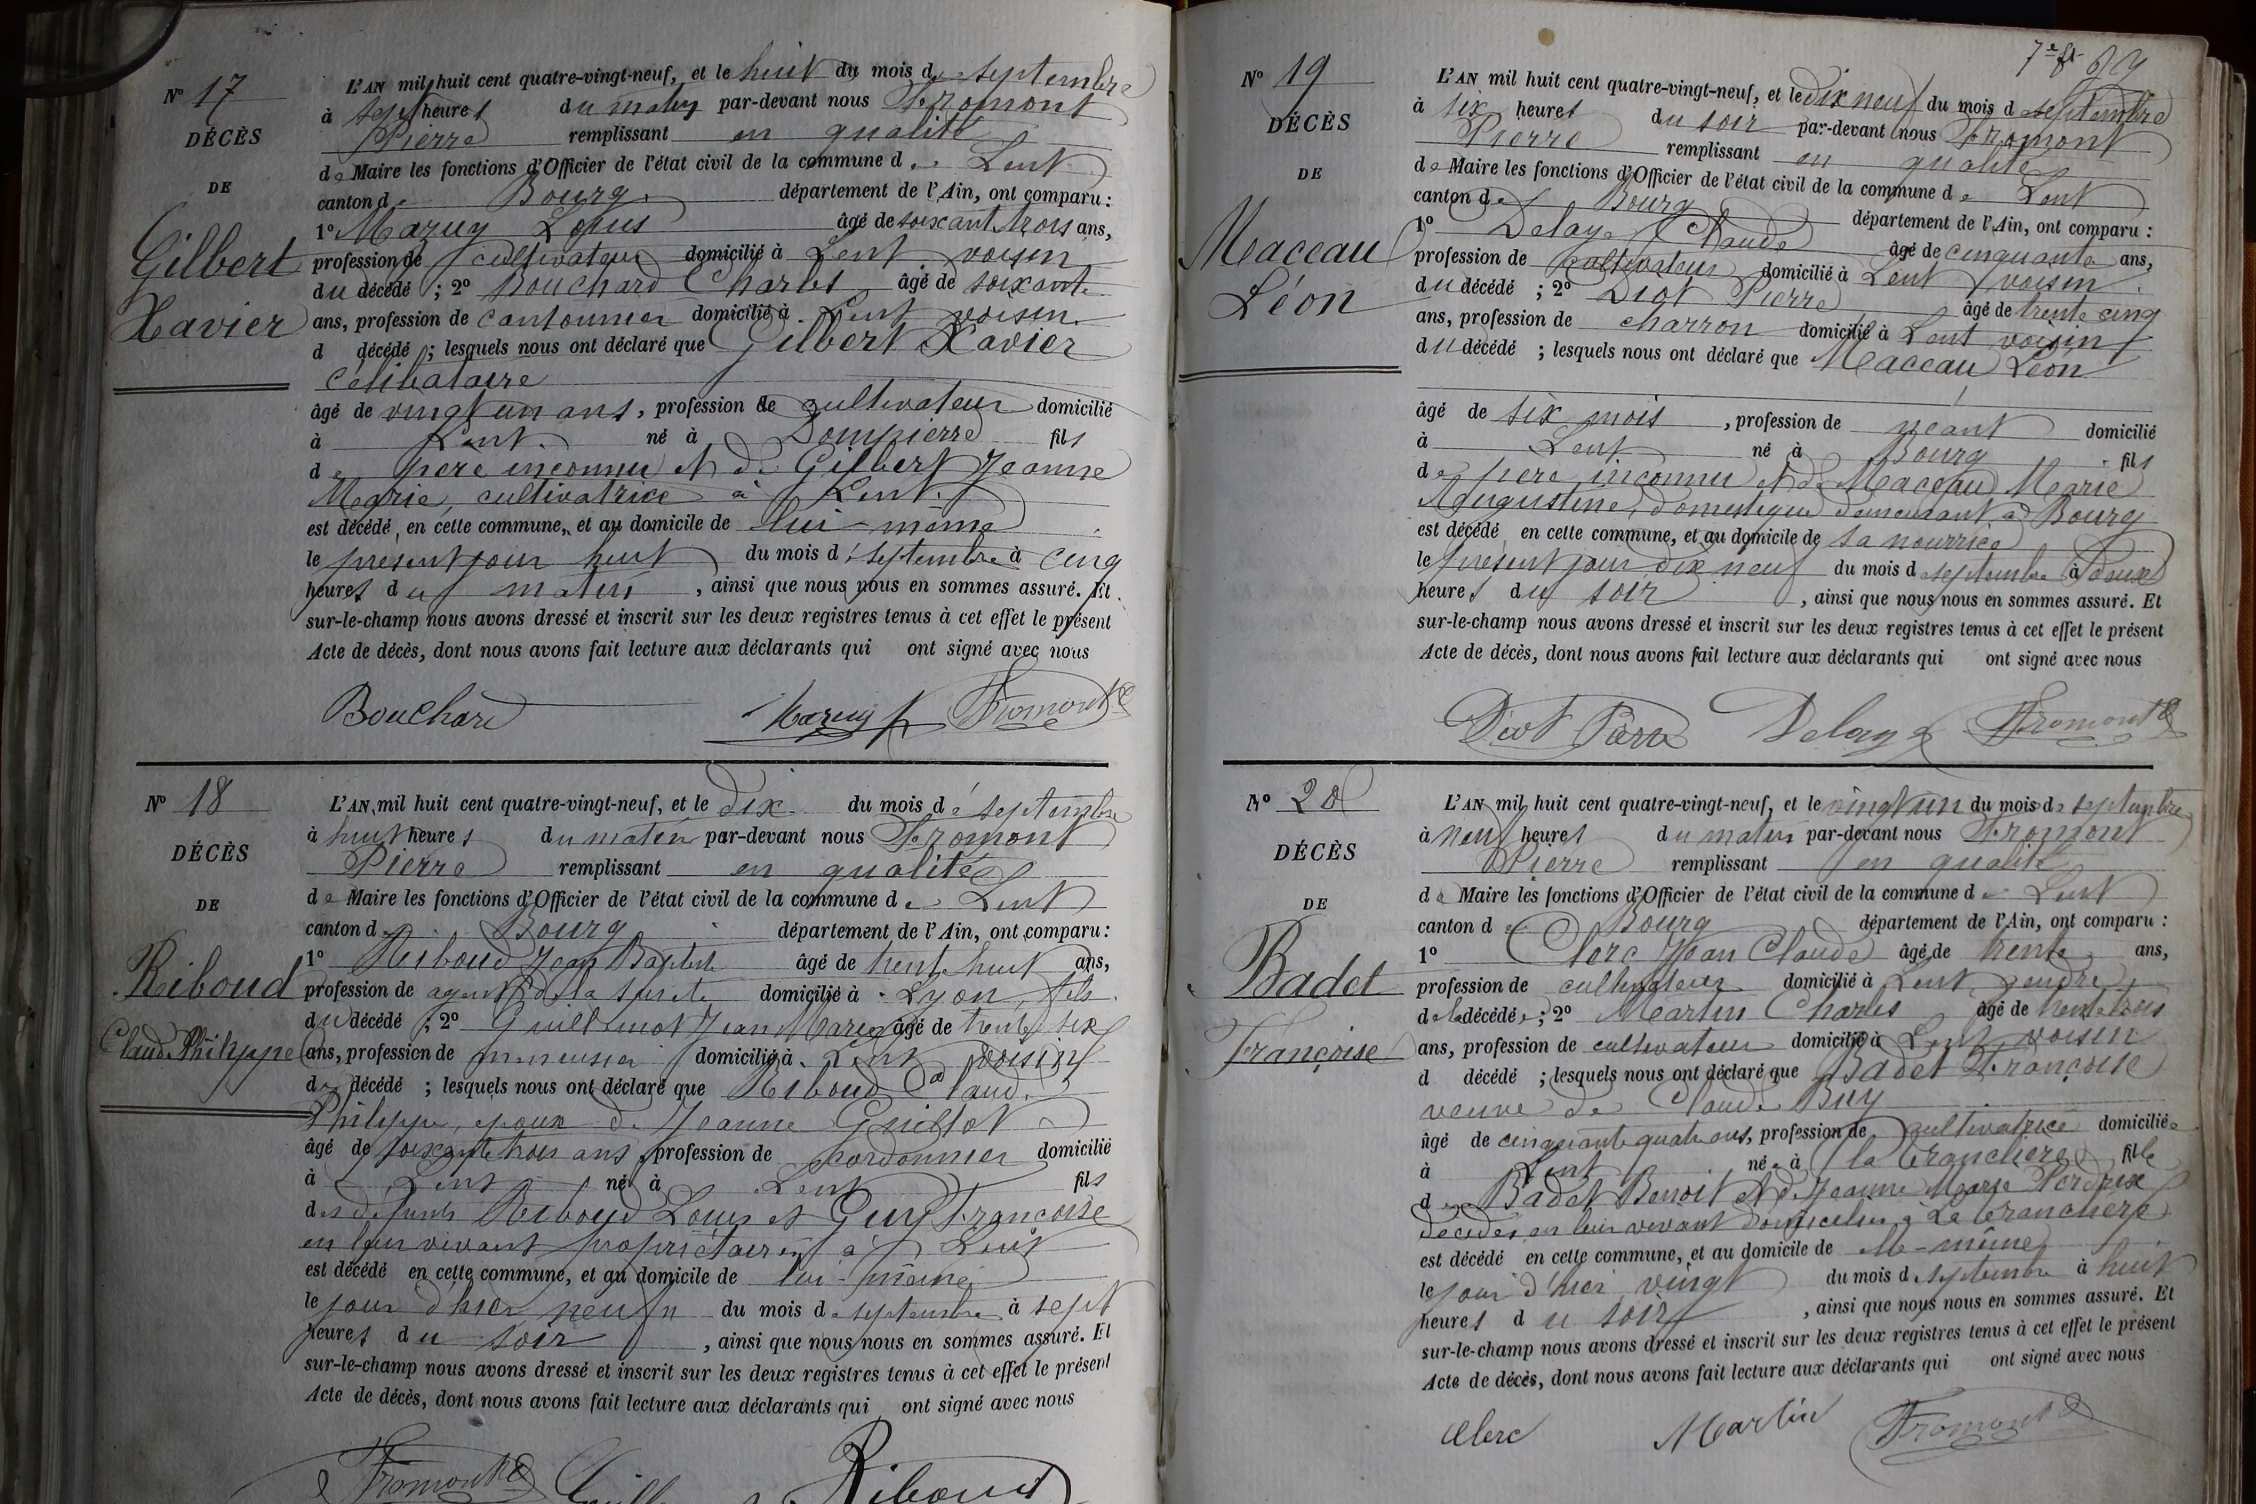 N° 17
DÉCÈS
DE
Gilbert
Xavier
L'AN mil huit cent quatre-vingt-neuf, et le huit du mois de septembre
à sept heures du matin par-devant nous Fromont
Pierre remplissant en qualité
de Maire les fonctions d'Officier de l'état civil de la commune de Lent
canton de Bourg département de l'Ain, ont comparu :
1° Mazuy Louis âgé de soixant trois ans,
profession de cultivateur domicilié à Lent voisin
du décédé ; 2° Bouchard Charles âgé de soixante
ans, profession de cantonnier domicilié à Lent voisin
d décédé ; lesquels nous ont déclaré que Gilbert Xavier
célibataire
âgé de vingt un ans, profession de cultivateur domicilié
à Lent né à Dompierre fils
de père inconnu et de Gilbert Jeanne
Marie, cultivatrice à Lent.
est décédé, en cette commune, et au domicile de lui-même
le présent jour huit du mois de septembre à cinq
heures du matin, ainsi que nous nous en sommes assuré. Et
sur-le-champ nous avons dressé et inscrit sur les deux registres tenus à cet effet le présent
Acte de décès, dont nous avons fait lecture aux déclarants qui ont signé avec nous
Bouchard Mazuy Fromont
N° 18
DÉCÈS
DE
Riboud
Claude Philippe
L'AN mil huit cent quatre-vingt-neuf, et le dix du mois de septembre
à huit heures du matin par-devant nous Fromont
Pierre remplissant en qualité
de Maire les fonctions d'Officier de l'état civil de la commune de Lent
canton de Bourg département de l'Ain, ont comparu :
1° Riboud Jean Baptiste âgé de trente huit ans,
profession de agent de la sureté domicilié à Lyon, fils
du décédé ; 2° Guillemot Jean Marie âgé de trente six
ans, profession de menuisier domicilié à Lent voisin
du décédé ; lesquels nous ont déclaré que Riboud Claude
Philippe, époux de Jeanne Guillot
âgé de soixante trois ans, profession de cordonnier domicilié
à Lent né à Lent fils
des défunts Riboud Louis et Guy Françoise
en leur vivant propriétaires à Lent
est décédé en cette commune, et au domicile de lui-même
le jour d'hier neuf du mois de septembre à sept
heures du soir, ainsi que nous nous en sommes assuré. Et
sur-le-champ nous avons dressé et inscrit sur les deux registres tenus à cet effet le présent
Acte de décès, dont nous avons fait lecture aux déclarants qui ont signé avec nous
Fromont Riboud
N° 19
DÉCÈS
DE
Maceau
Léon
L'AN mil huit cent quatre-vingt-neuf, et le dix neuf du mois de septembre
à six heures du soir par-devant nous Fromont
Pierre remplissant en qualité
de Maire les fonctions d'Officier de l'état civil de la commune de Lent
canton de Bourg département de l'Ain, ont comparu :
1° Delaye Claude âgé de cinquante ans,
profession de cultivateur domicilié à Lent voisin
du décédé ; 2° Diot Pierre âgé de trente cinq
ans, profession de charron domicilié à Lent voisin
du décédé ; lesquels nous ont déclaré que Maceau Léon
âgé de six mois, profession de néant domicilié
à Lent né à Bourg fils
de père inconnu et de Maceau Marie
Augustine, domestique demeurant à Bourg
est décédé en cette commune, et au domicile de sa nourrice
le présent jour dix neuf du mois de septembre à
heures du soir, ainsi que nous nous en sommes assuré. Et
sur-le-champ nous avons dressé et inscrit sur les deux registres tenus à cet effet le présent
Acte de décès, dont nous avons fait lecture aux déclarants qui ont signé avec nous
Diot Pierre Delaye Fromont
N° 20
DÉCÈS
DE
Badet
Françoise
L'AN mil huit cent quatre-vingt-neuf, et le vingt un du mois de septembre
à neuf heures du matin par-devant nous Fromont
Pierre remplissant en qualité
de Maire les fonctions d'Officier de l'état civil de la commune de Lent
canton de Bourg département de l'Ain, ont comparu :
1° Clerc Jean Claude âgé de trente ans,
profession de cultivateur domicilié à Lent gendre
de la décédée ; 2° Martin Charles âgé de trente trois
ans, profession de cultivateur domicilié à Lent voisin
d décédé ; lesquels nous ont déclaré que Badet Françoise
veuve de Claude Buy
âgé de cinquante quatre ans, profession de cultivatrice domiciliée
à Lent née à la Tranclière fille
de Badet Benoit et de Jeanne Marie Perdrix
décédés en leur vivant domiciliés à La Tranclière
est décédé en cette commune, et au domicile de elle-même
le jour d'hier vingt du mois de septembre à huit
heures du soir, ainsi que nous nous en sommes assuré. Et
sur-le-champ nous avons dressé et inscrit sur les deux registres tenus à cet effet le présent
Acte de décès, dont nous avons fait lecture aux déclarants qui ont signé avec nous
Clerc Martin Fromont